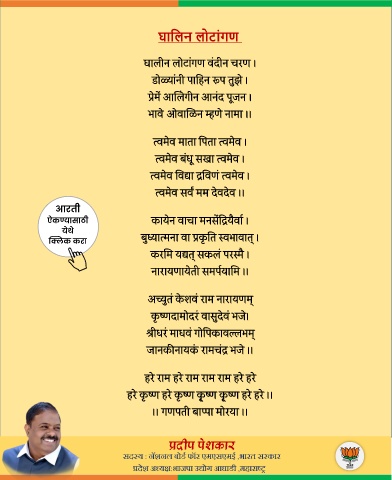 घालिन लोटांगण
घालीन लोटांगण वंदीन चरण ।
डोळ्यांनी पाहिन रूप तुझे ।
प्रेमें आलिगीन आनंद पूजन ।
भावे ओवाळिन म्हणे नामा ।।
त्वमेव माता पिता त्वमेव ।
त्वमेव बंधू सखा त्वमेव ।
त्वमेव विद्या द्रविणं त्वमेव ।
त्वमेव सर्वं मम देवदेव ।।
आरती
ऐकण्यासाठी
येथे
क्लिक करा
कायेन वाचा मनसेंद्रियैर्वा ।
बुध्यात्मना वा प्रकृति स्वभावात् ।
करमि यद्यत् सकलं परस्मै ।
नारायणायेती समर्पयामि ।।
अच्युतं केशवं राम नारायणम्
कृष्णदामोदरं वासुदेवं भजे।
श्रीधरं माधवं गोपिकावल्लभम्
जानकीनायकं रामचंद्र भजे ।।
हरे राम हरे राम राम राम हरे हरे
हरे कृष्ण हरे कृष्ण कृष्ण कृष्ण हरे हरे ।।
।। गणपती बाप्पा मोरया ।।
प्रदीप पेशकार
सदस्य : नॅशनल बोर्ड फॉर एमएसएमई ,भारत सरकार
प्रदेश अध्यक्ष भाजपा उद्योग आघाडी ,महाराष्ट्र